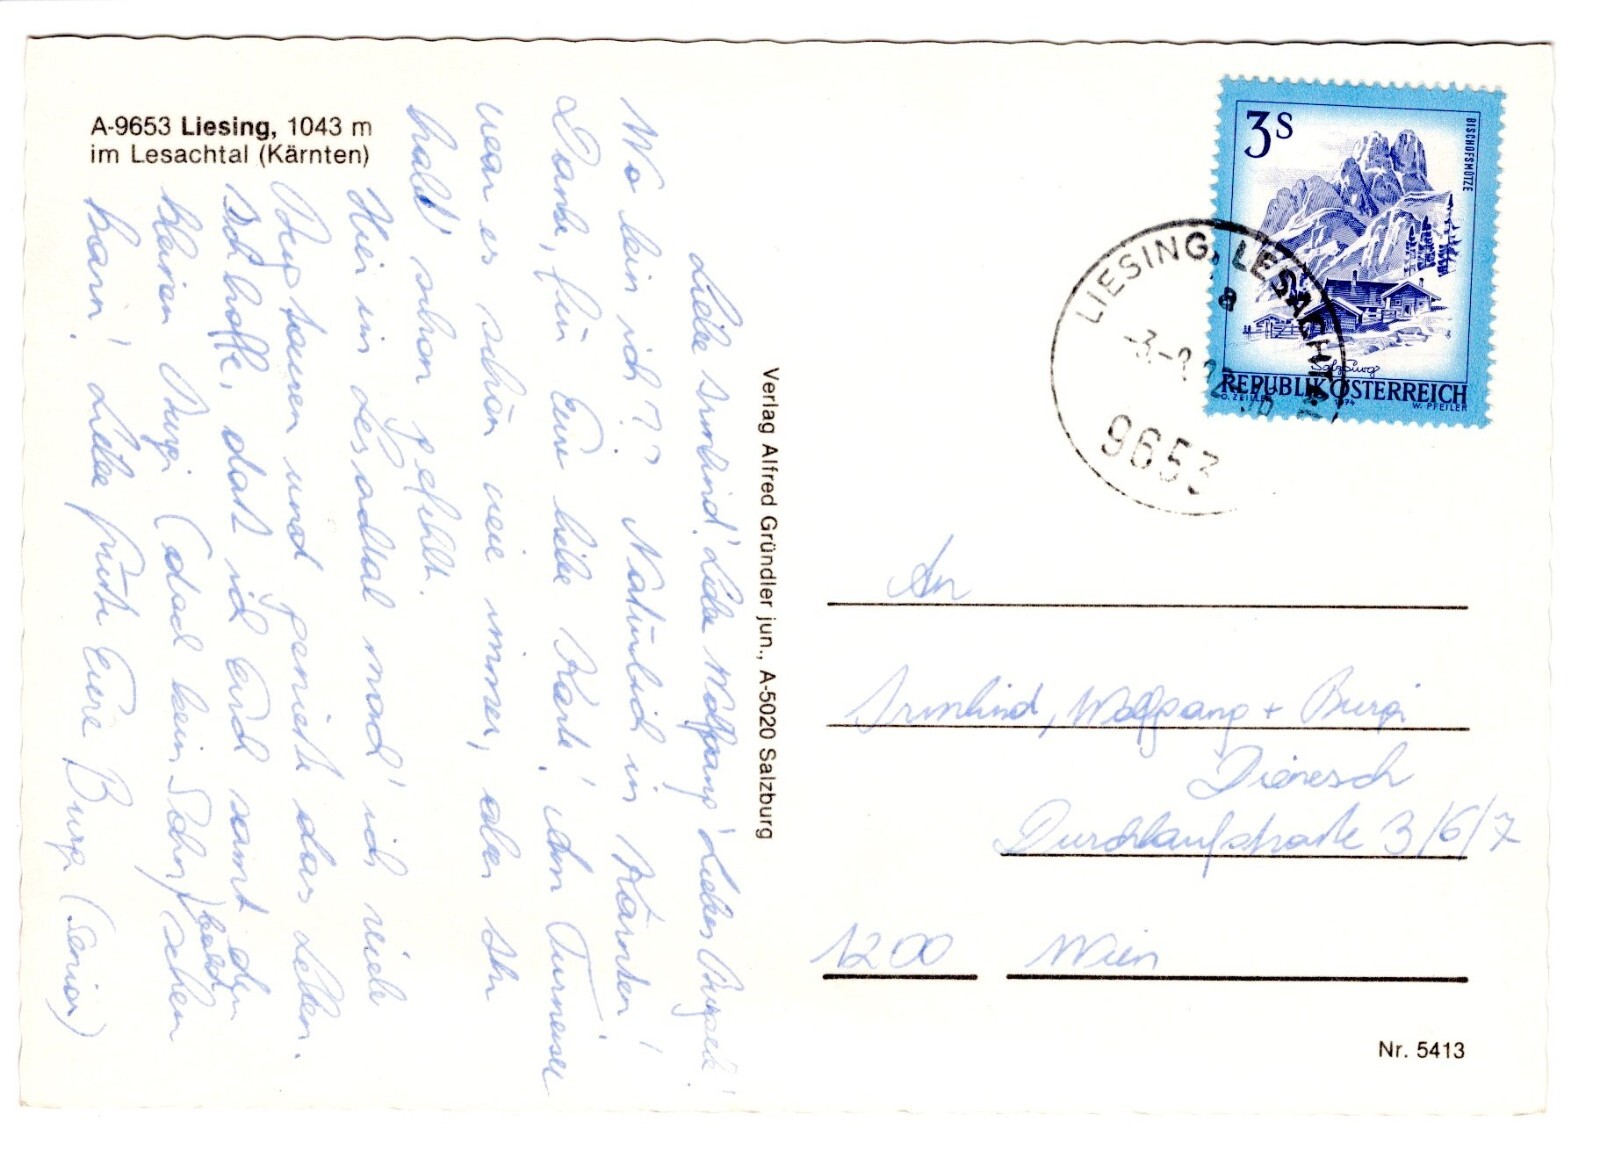 A-9653 Liesing, 1043 m
im Lesachtal (Kärnten)
Liebe Irmlind! Lieber Wolfgang! Liebes Burgerl!
Wo bin ich?? Natürlich in Kärnten!
Danke, für Eure liebe Karte! Am Turnersee
war es schön wie immer, aber Ihr
habt schon gefehlt.
Hier im Lesachtal mach' ich viele
Bergtouren und genieße das Leben.
Ich hoffe, daß ich Euch samt der
kleinen Burgi (doch kein Sohn) bald sehen
kann! Liebe Grüße Eure Burgi (Senior)
Verlag Alfred Gründler jun., A-5020 Salzburg
3S
BISCHOFSMÜTZE
Salzburg
REPUBLIK ÖSTERREICH
O. ZEILLER 1974 W. PFEILER
LIESING, LESACHTAL
a
9653
An
Irmlind, Wolfgang + Burgi
Dienesch
Durchlaufstraße 3/6/7
1200 Wien
Nr. 5413